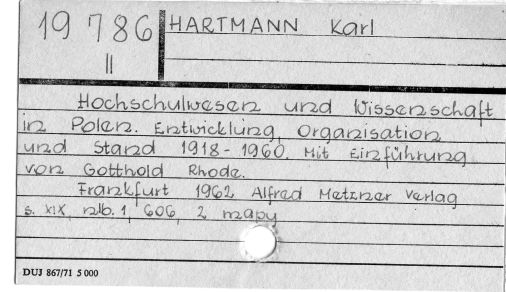 19 786 HARTMANN Karl
II
Hochschulwesen und Wissenschaft
in Polen. Entwicklung, Organisation
und Stand 1918-1960. Mit Einführung
von Gotthold Rhode.
Frankfurt 1962 Alfred Metzner Verlag
s. XIX, nlb. 1, 606, 2 mapy
DUJ 867/71 5 000